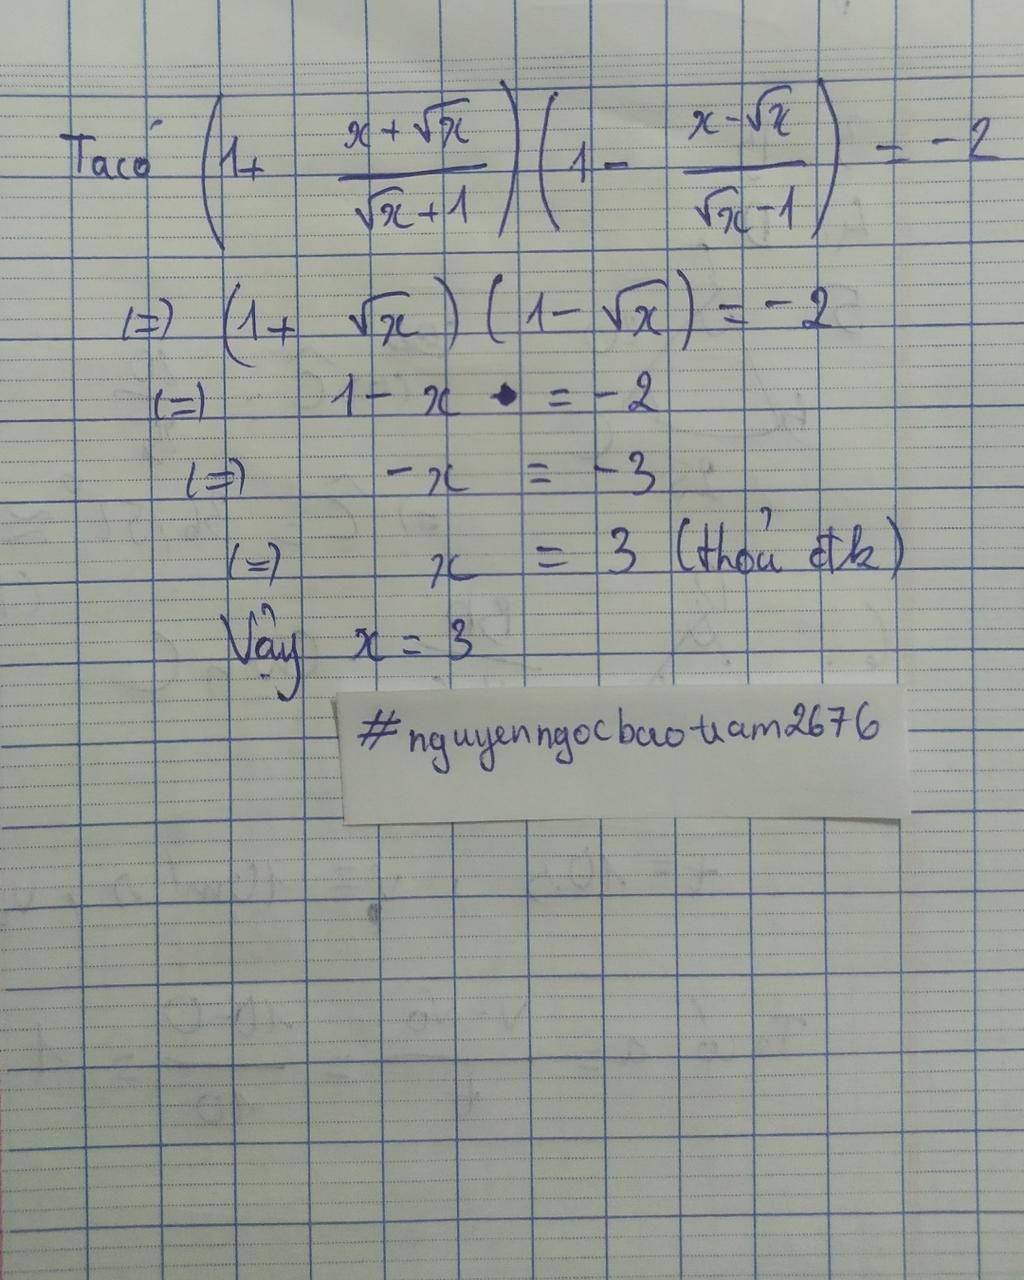 Ta có (1+ (x+√x)/(√x+1)) (1- (x-√x)/(√x-1)) = -2
(=) (1+ √x) (1- √x) = -2
(=) 1- x = -2
(=) -x = -3
(=) x = 3 (thoả đk)
Vậy x = 3
#nguyenngocbaotram2676